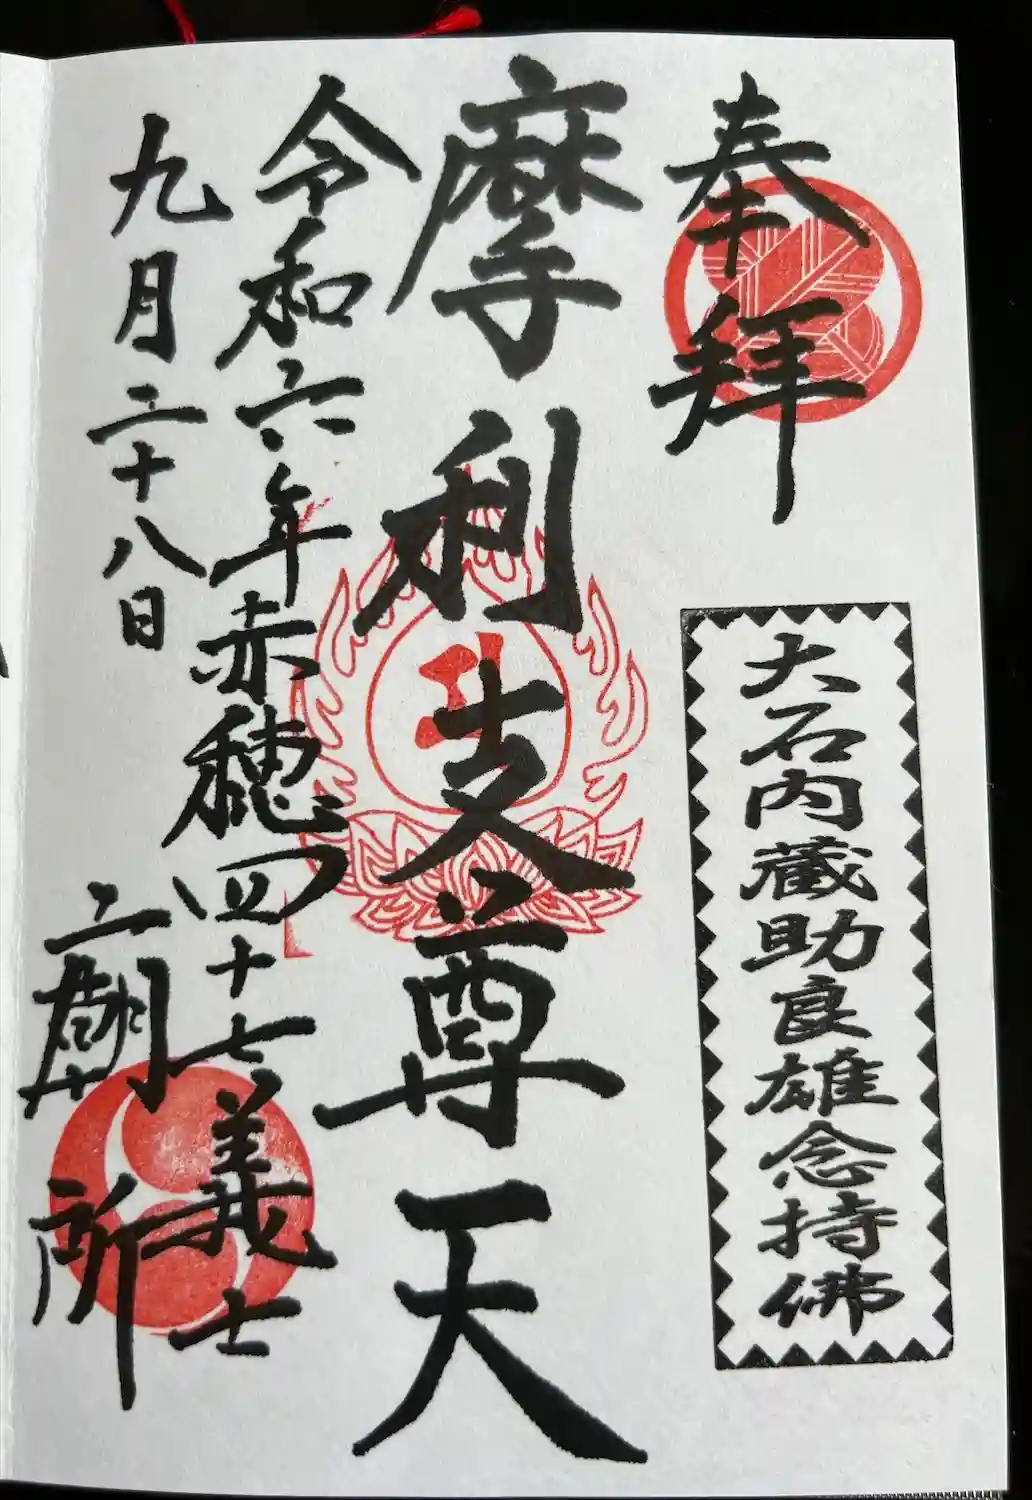 奉拝
大石内藏助良雄念持佛
摩利支尊天
令和六年
赤穂四十七義士
九月二十八日
廟所